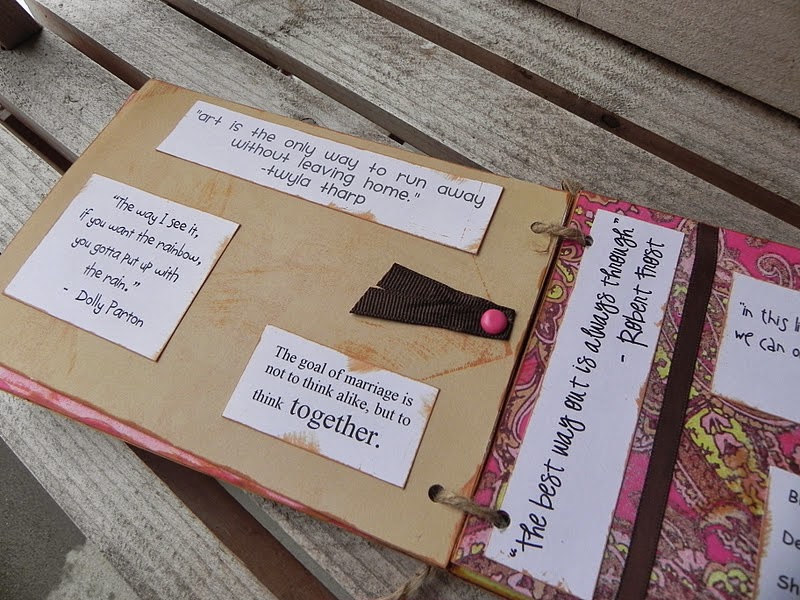 "art is the only way to run away
without leaving home."
-twyla tharp
"The way I see it,
if you want the rainbow,
you gotta put up with
the rain."
- Dolly Parton
The goal of marriage is
not to think alike, but to
think together.
"the best way out is always through"
- Robert Frost
"in this
we can